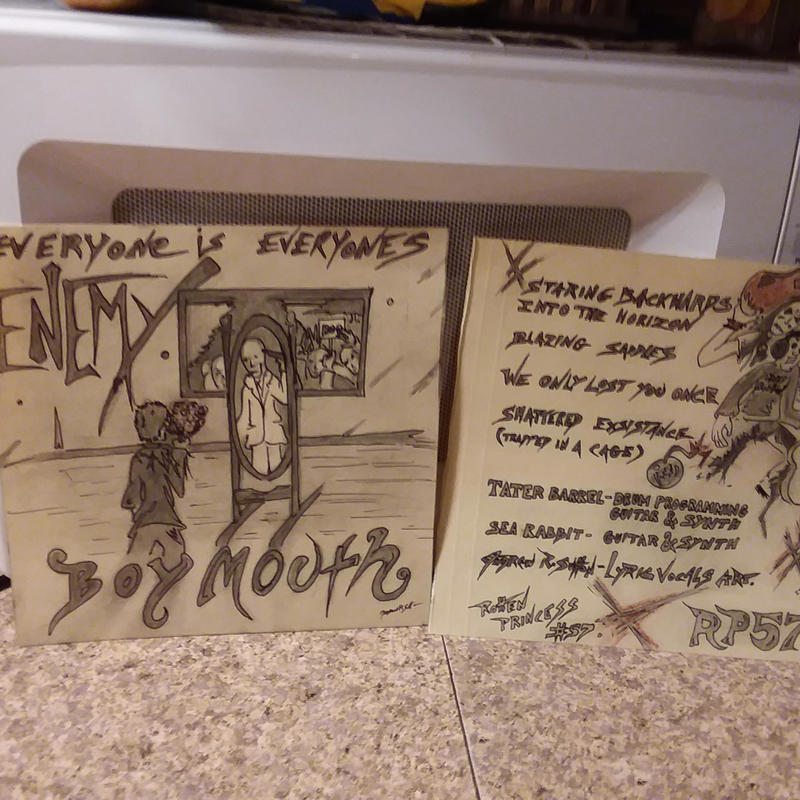 EVERYONE is EVERYONES
ENEMY
BOY MOUTH
STARING BACKWARDS
INTO THE HORIZON
BLAZING SADDLES
WE ONLY LOST YOU ONCE
SHATTERED EXSISTANCE
(TRAPPED IN A CAGE)
TATER BARREL- DRUM PROGRAMMING
GUITAR & SYNTH
SEA RABBIT- GUITAR & SYNTH
-LYRIC VOCALS ART.
ROTTEN
PRINCESS
#57
RP57